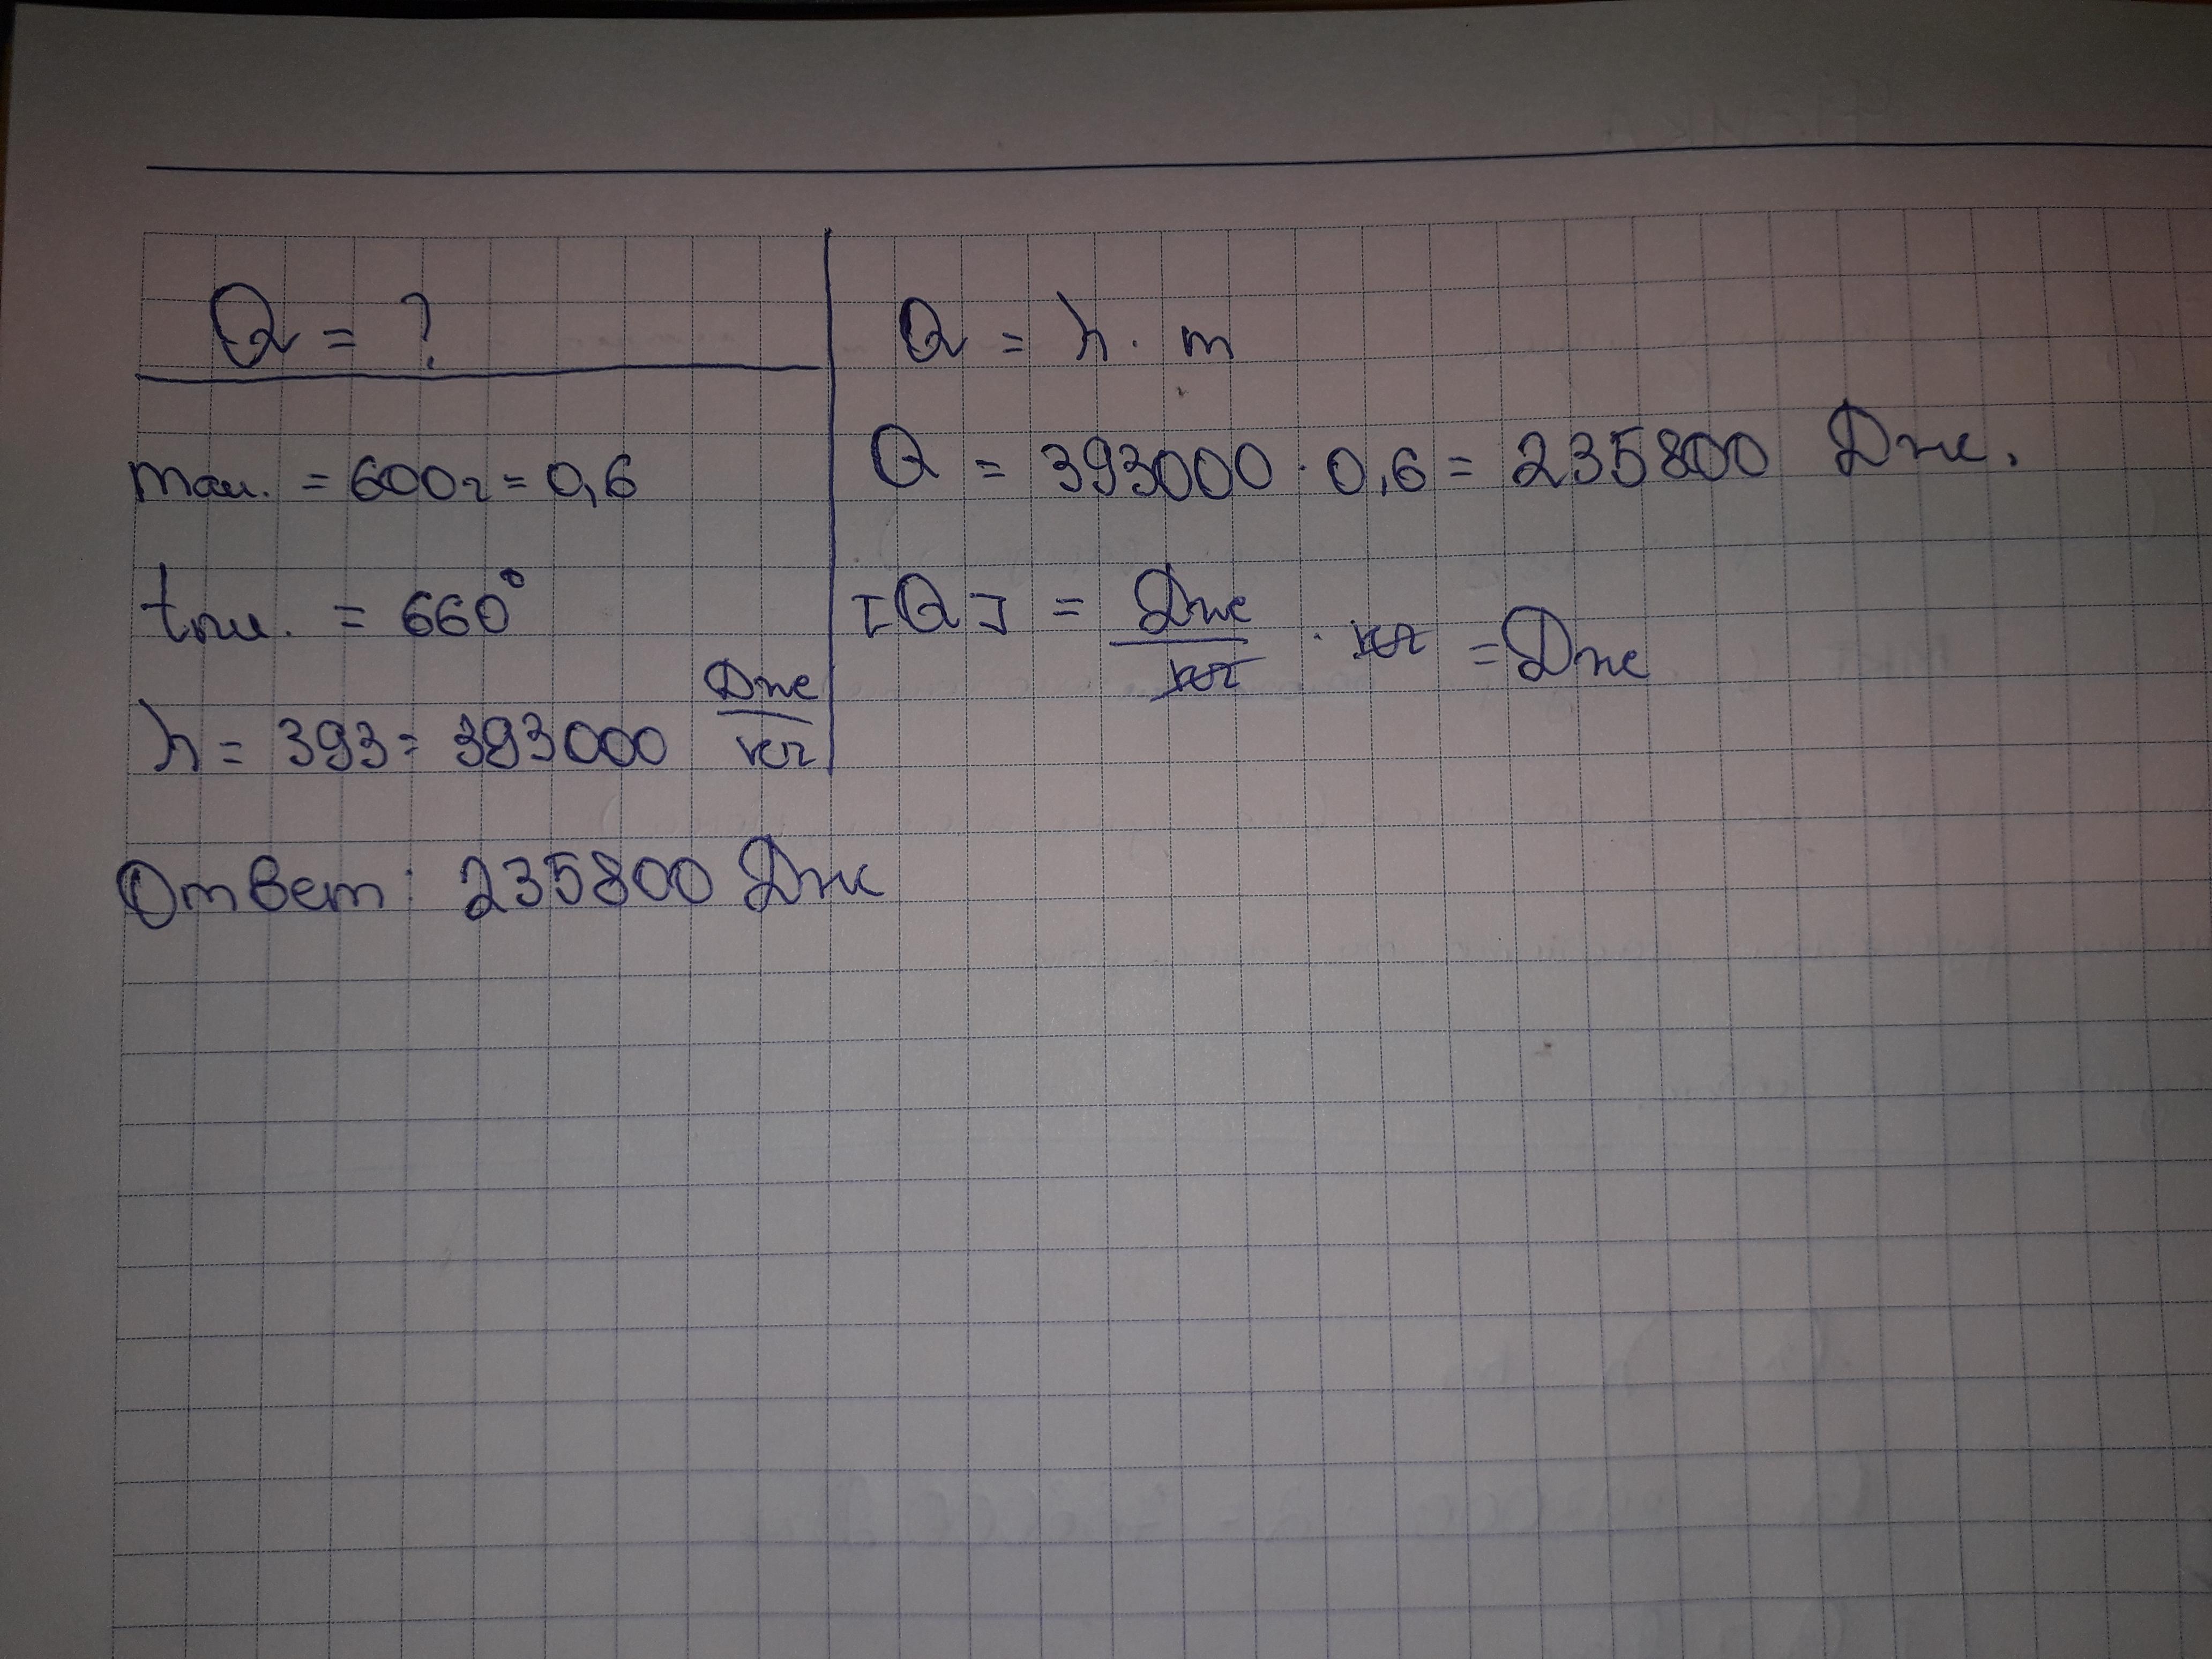 Q = ?
mал. = 600г = 0,6
tпл. = 660°
λ = 393 = 393000 Дж/кг
Q = λ · m
Q = 393000 · 0,6 = 235800 Дж.
[Q] = Дж/кг · кг = Дж
Ответ: 235800 Дж